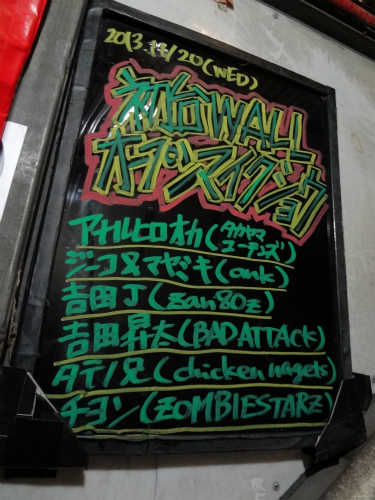 2013.11/20(WED)
初台WALL
オープンマイクショウ
アナルヒロオカ(タカヤマ
ユーテンズ)
ジーコ&マヤミキ(ank)
吉田J(zan80z)
吉田昇太(BAD ATTACK)
タテノ兄(chicken nagets)
チヨン(ZOMBIESTARZ)